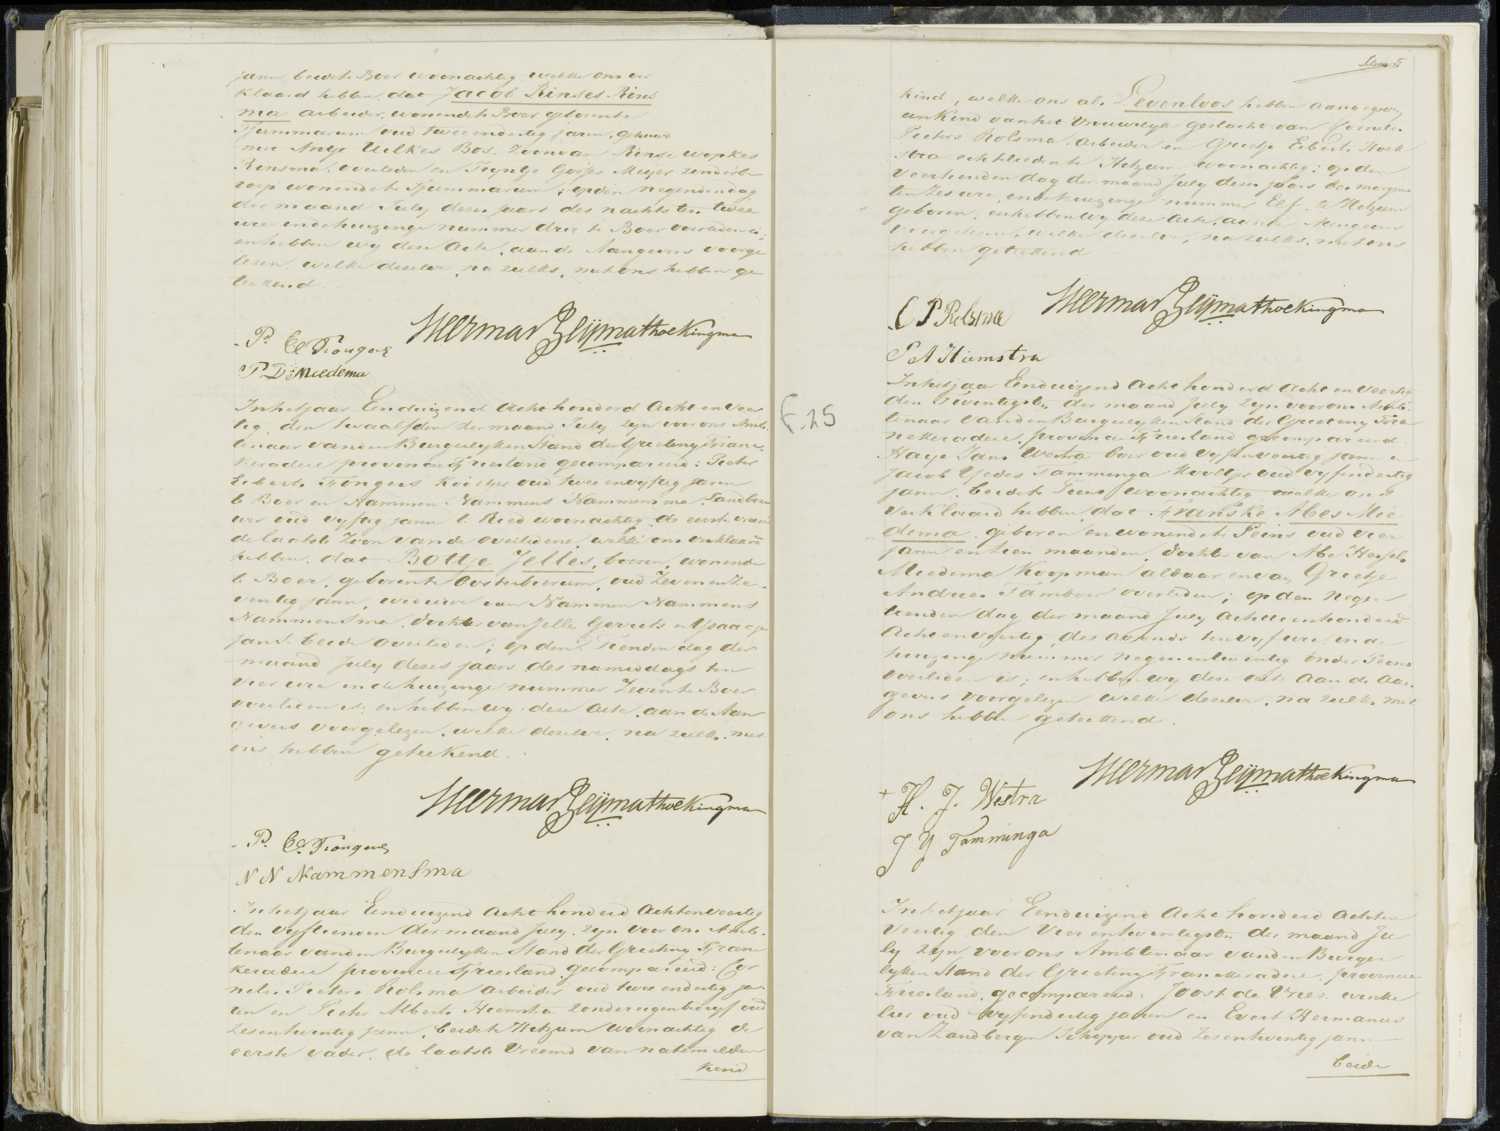 jaren, beide te Boer woonachtig welke ons ver
klaard hebben, dat Jacob Rinses Rins
ma arbeider, wonende te Boer geboren te
Tjummarum oud twee en dertig jaren, gehuwd
met Antje Uilkes Bos. Zoon van Rinse Wopkes
Rinsma, overleden en Trijntje Gorps Meijer zonder be
roep wonende te Tjummarum; op den negensten dag
der maand July dezes jaars des nachts ten twee
ure in de huizinge nummer drie te Boer overleden is;
en hebben wy deze Acte, aan de Aangevers voorge
lezen, welke dezelve, na zulks, met ons hebben ge
teekend.
P. E. Tsongers
P D Miedema
In het jaar Eenduizend Acht honderd Acht en Veer
tig, den twaalfden der maand July, zyn voor ons Amb
tenaar van den Burgerlyken Stand der Grieteny Frane
keradeel provincie Friesland gecompareerd: Pieter
te Boer en Nammen Nammens Nammensma Landbou
wer oud vyftig jaren te Ried woonachtig, de eerste vriend
de laatste Zoon van de overledene, welke ons verklaard
hebben, dat Bottje Jelles, boerin, wonende
te Boer, geboren te Oosterbierum, oud Zeven en Ze-
ventig jaren, weduwe van Nammen Nammens
Nammensma, dochter van Jelle Gerrits en Ysaacje
Jans beide overleden; op den Tienden dag der
maand July dezes jaars des namiddags ten
vier ure in de huizinge nummer Zeven te Boer
overleden is; en hebben wy deze Acte, aan de Aan
gevers voorgelezen, welke dezelve, na zulks, met
ons hebben geteekend.
P. E. Tsongers
N N Nammensma
In het jaar Eenduizend Acht honderd Acht en Veertig
den vyftienden der maand July, zyn voor ons Amb-
tenaar van den Burgerlyken Stand der Grieteny Frane
keradeel provincie Friesland, gecompareerd: Cor
nelis Pieters Rolsma arbeider oud twee en dertig ja
ren en Pieter Alberts Hiemstra zonder eigen bedryf oud
Zesentwintig jaren, beide te Hitzum woonachtig de
eerste vader, de laatste Vriend van natemelden
kind
F. 25
kind, welke ons als Levenloos hebben aangegeven
een Kind van het Vrouwelyk geslacht van Cornelis
Pieters Rolsma, Arbeider en Grietje Eiberts Hoek
stra echtelieden te Hitzum woonachtig; op den
veertienden dag der maand July dezes jaars des morgens
ten Zes ure, in de huizinge nummer Elf te Hitzum
geboren, en hebben wy deze Acte, aan de Aangevers
voorgelezen, welke dezelve, na zulks, met ons
hebben geteekend
C P Rolsma
P A Hiemstra
In het jaar Eenduizend Acht honderd Acht en Veertig
den Twintigsten der maand July zyn voor ons Amb-
tenaar van den Burgerlyken Stand der Grieteny Fra
nekeradeel, provincie Friesland gecompareerd:
Haije Jans Westra boer oud vyf en veertig jaren en
Jacob Ypes Tamminga Koeltje oud vyf en dertig
jaren, beide te Peins woonachtig welke ons
verklaard hebben, dat Franske Abes Mie
dema, geboren en wonende te Peins oud vier
jaren en tien maanden, dochter van Abe Hessels
Miedema Koopman aldaar en van Grietje
Andries Tamboer overleden; op den Negen
tienden dag der maand July Achttienhonderd
Acht en Veertig, des avonds ten vyf ure in de
huizinge nummer negenentwintig onder Peins
overleden is; en hebben wy deze acte aan de Aan
gevers voorgelezen welke dezelve, na zulks, met
ons hebben geteekend.
H. J. Westra
J Y Tamminga
In het jaar Eenduizend Acht honderd Acht en
Veertig den Vier en twintigsten der maand Ju
ly zyn voor ons Ambtenaar van den Burger
lyken Stand der Grieteny Franekeradeel, provincie
Friesland, gecompareerd: Joost de Vries, winke
lier oud vyf en dertig jaren en Evert Hermanus
van Zandbergen Schipper oud zesentwintig jaren
beide